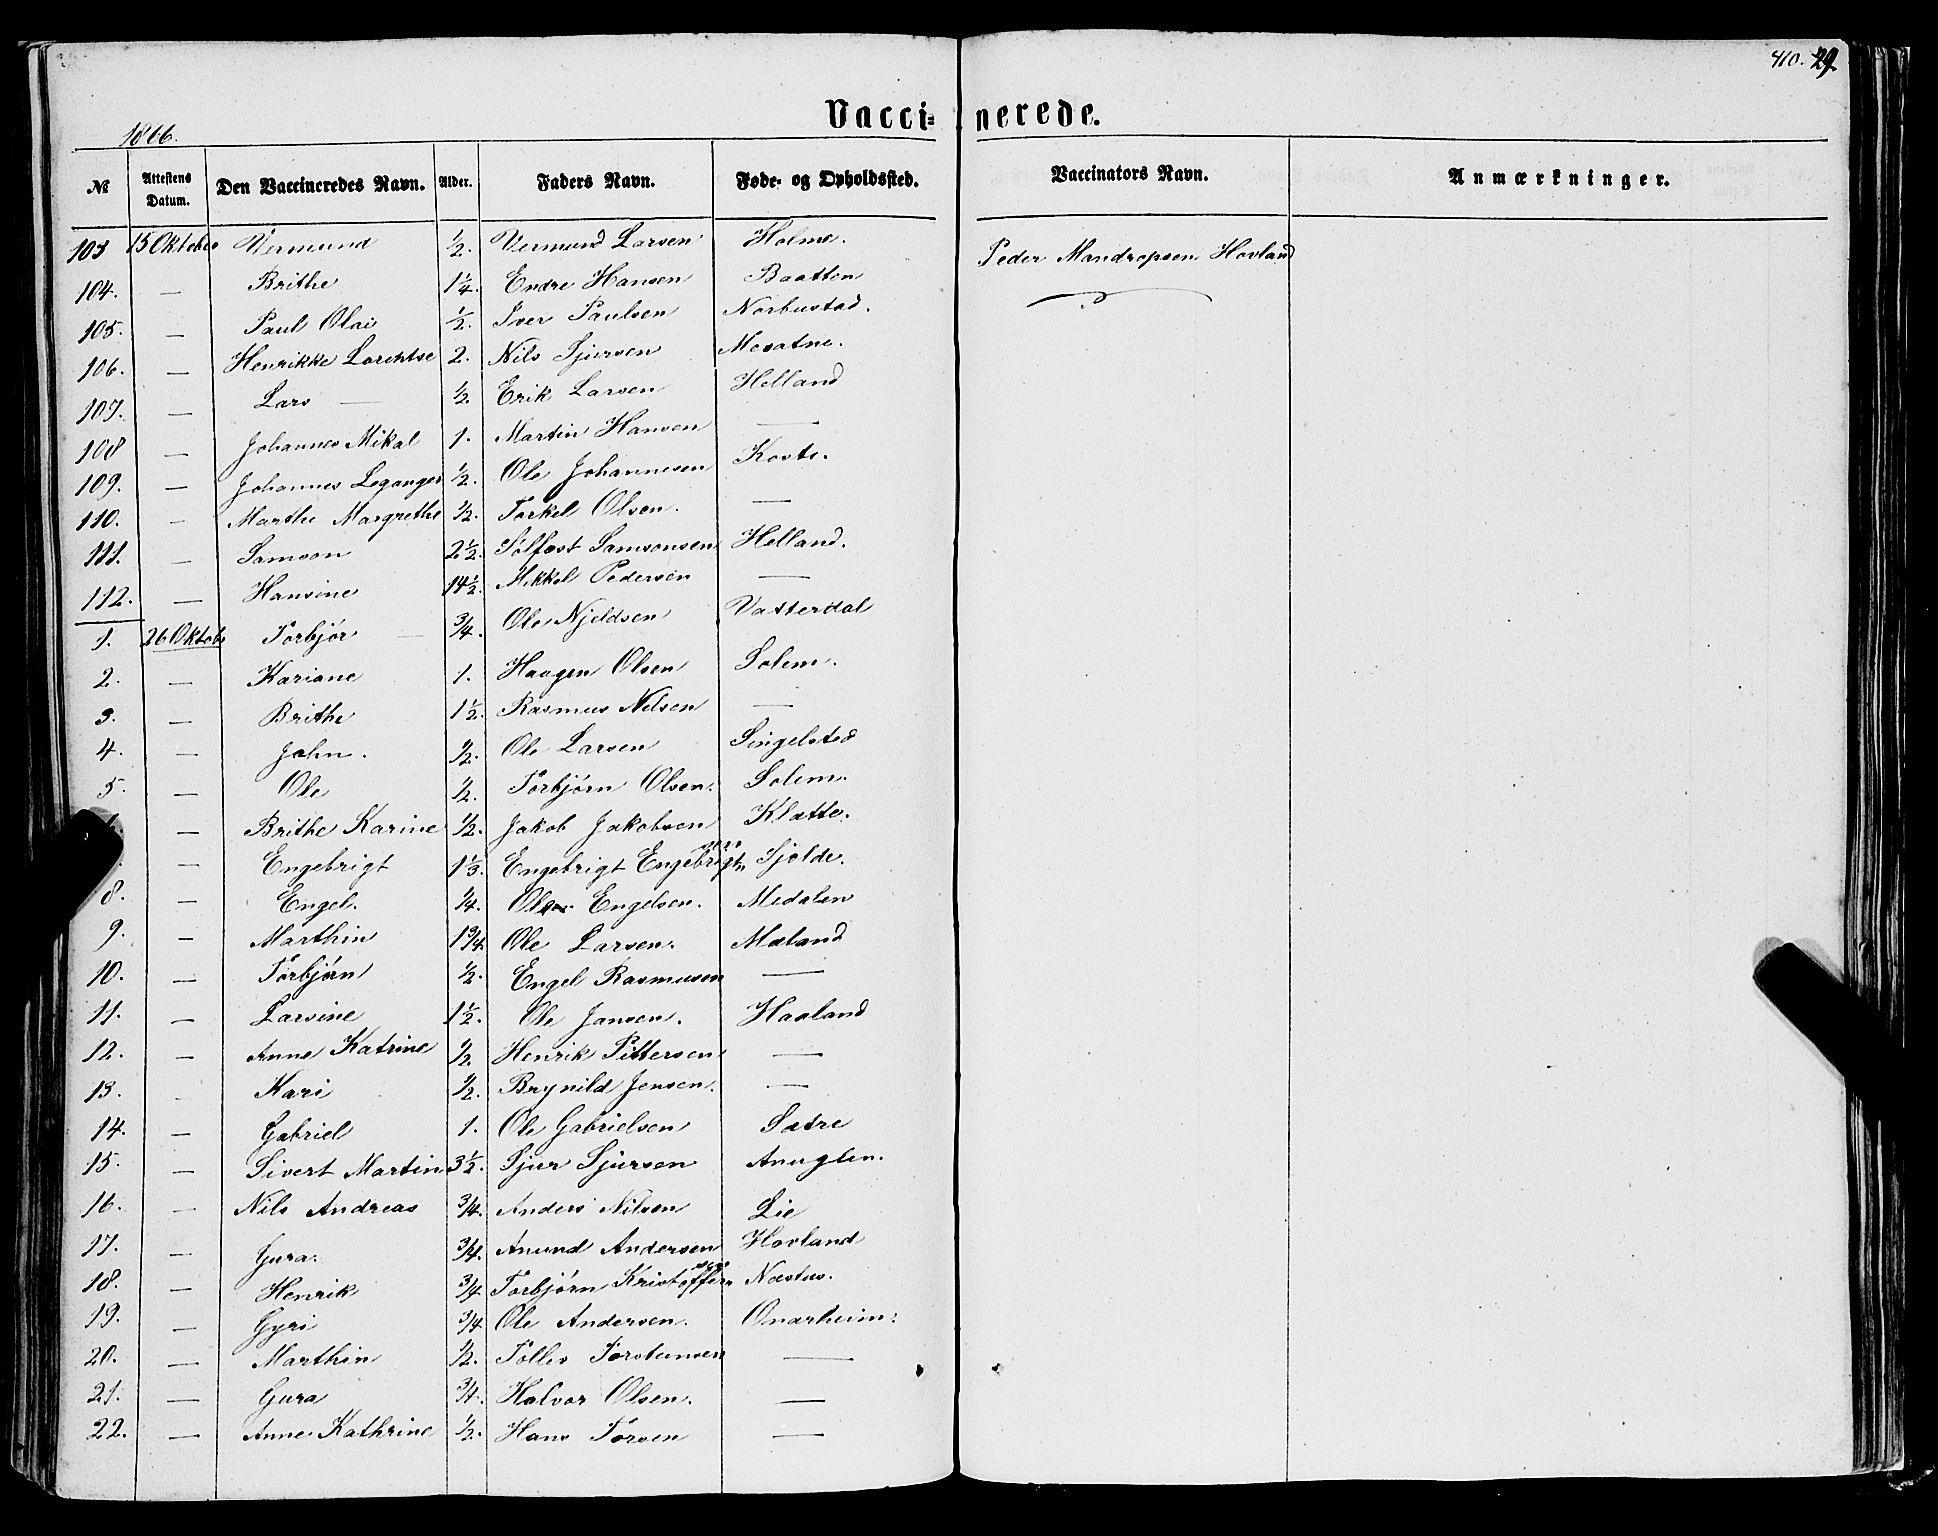 410. 29
Vaccinerede.
1866.
№ Attestens Datum. Den Vaccineredes Navn. Alder. Faders Navn. Føde- og Opholdssted. Vaccinators Navn. Anmærkninger.
103 15 Oktober Vermund ½. Vermund Larsen Holme. Peder Mandropsen Hovland
104. — Brithe 1¼. Endre Hansen Baatten
105. — Paul Olai ½. Iver Paulsen Norbustad.
106. — Henrikke 2. Nils Sjursen
107. — Lars — ½. Erik Larsen Helland
108 — Johannes Mikal 1. Martin Hansen —
109. — Johannes Leganger ½. Ole Johannesen Koste.
110. — Marthe Margrethe ½. Torkel Olsen. —
111. — Samson 2½. Sølfast Samsonsen Helland.
112. — Hansine 14½. Mikkel Pedersen —
1. 26 Oktob Torbjør — ¾. Ole Njeldsen Vatterdal
2. — Kariane 1. Haagen Olsen Solem.
3. — Brithe 1½. Rasmus Nilsen —
4. — John. ½. Ole Larsen Singelsted
5. — Ole ½. Torbjørn Olsen. Solem.
— Brithe Karine ½. Jakob Jakobsen Klætte.
— Engebrigt 1⅓. Engebrigt Sjolde.
8. — Engel. ¼. Engelsen. Medalen
9. — Marthin 1¾. Ole Larsen. Mæland
10. — Torbjørn ½. Engel Rasmusen —
11. — Larsine 1½. Ole Jansen. Haaland
12. — Anne Katrine ½. Henrik Pittersen —
13. — Kari ½. Brynild Jensen. —
14. — Gabriel 1. Ole Gabrielsen Sætre
15. — Sivert Martin 3½. Sjur Sjursen Anuglen.
16. — Nils Andreas ¾. Anders Nilsen Lie
17. — Gura. ¾. Anund Andersen Hovland
18. — Henrik ¾ Torbjørn Næstus.
19. — Gyri ¾ Ole Andersen. Onarheim.
20. — Marthin ½. Tollev Torstensen —
21. — Gura ¾. Halvor Olsen. —
22. — Anne Kathrine ½. Hans Torsen —